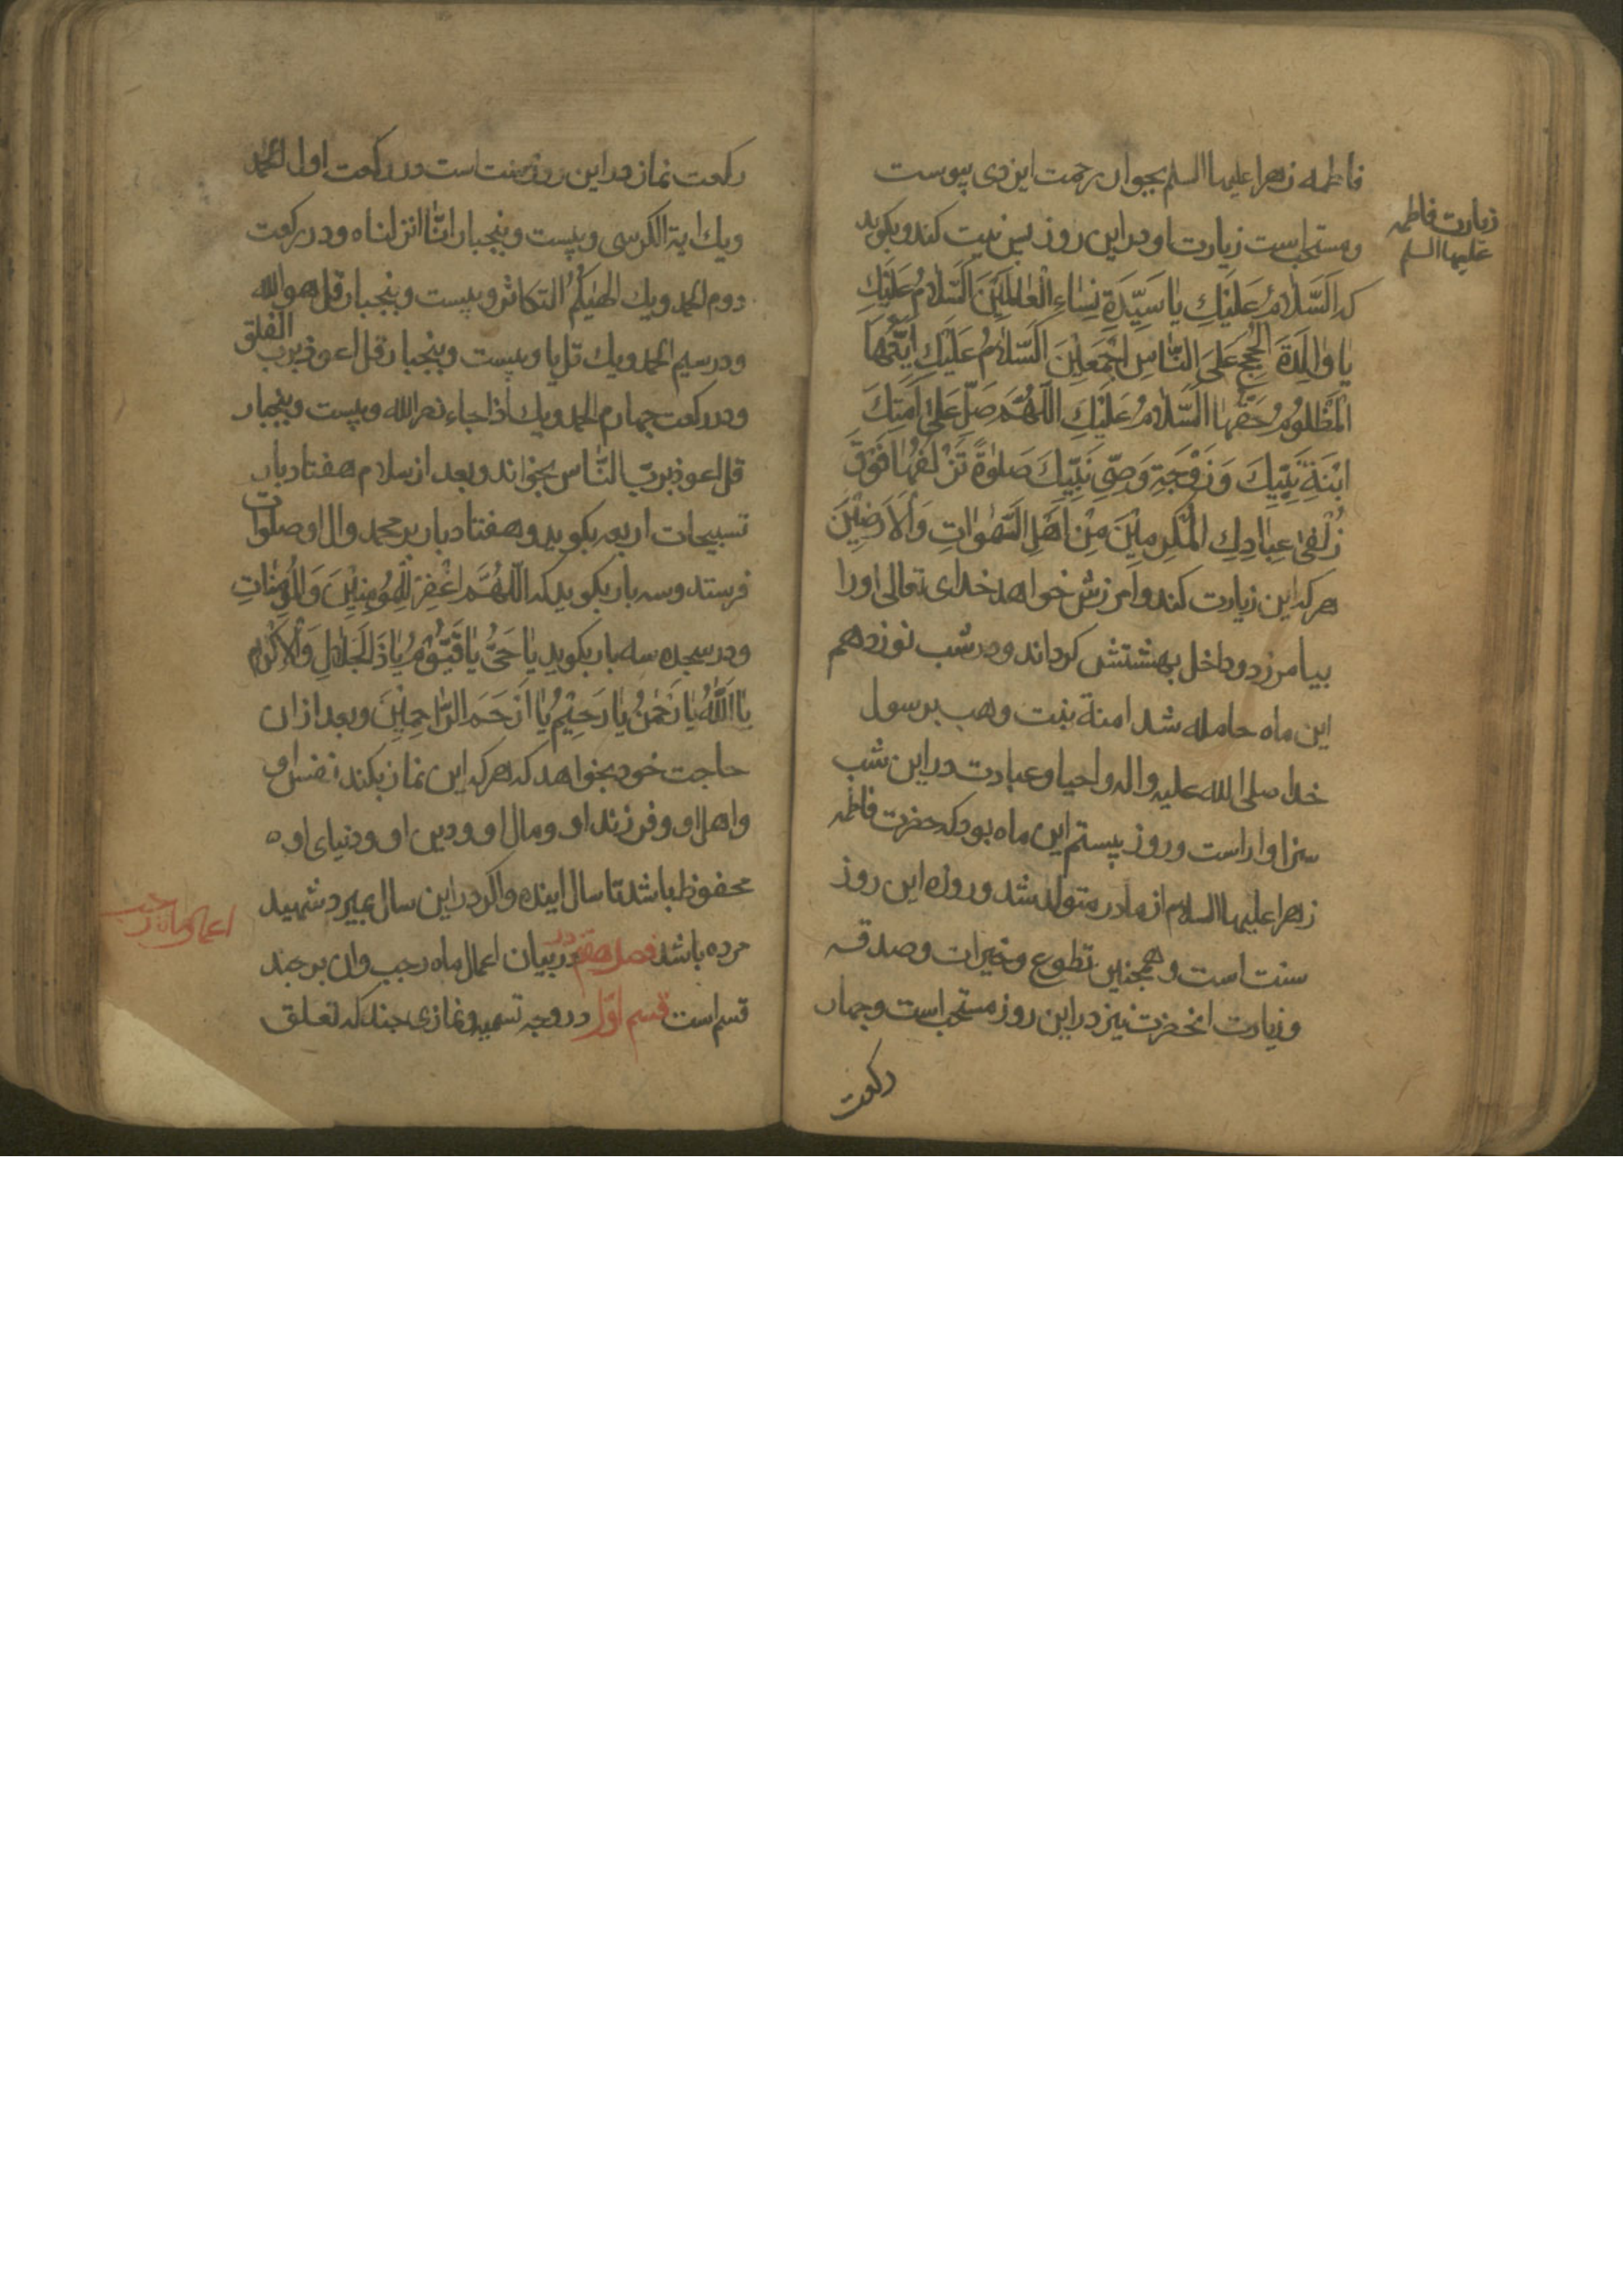 فاطمه زهرا علیها السلم بجوار رحمت ایزدی پیوست
زیارت فاطمه
علیها السلم
و مستحب است زیارت او در این روز پس نیت کند و بکوید
که اَلسَّلامُ عَلَیْكِ یا سَیِّدَةِ نِساءِ الْعالَمِیْنَ اَلسَّلامُ عَلَیْكِ
یا والِدَةَ الْحُجَجِ عَلَی النّاسِ اَجْمَعِیْنَ اَلسَّلامُ عَلَیْكِ اَیَّتُهَا
الْمَظْلُومُ حَقُّها اَلسَّلامُ عَلَیْكِ اَللّهُمَّ صَلِّ عَلی اَمَتِكَ
ابْنَةِ نَبِیِّكَ وَ زَوْجَةِ وَصِیِّ نَبِیِّكَ صَلوةً تَزْلِفُها فَوْقَ
زُلْفی عِبادِكَ الْمُكْرَمِیْنَ مِنْ اَهْلِ السَّمواتِ وَالْاَرَضِیْنَ
هر که این زیارت کند و امرزش خواهد خدای تعالی او را
بیامرزد و داخل بهشتش کرداند و در شب نوزدهم
این ماه حامله شد امنة بنت وهب برسول
خدا صلی الله علیه واله و احیا و عبادت در این شب
سزاوار است و روز بیستم این ماه بود که حضرت فاطمه
زهرا علیها السلام از مادر متولد شد و روزه این روز
سنت است و همچنین تطوع و خیرات و صدقه
و زیارت انحضرت نیز در این روز مستحب است و چهار
رکعت
رکعت نماز در این روز سنت است در رکعت اول الحمد
ویك ایة الکرسی و بیست و پنجبار انّا انزلناه و در رکعت
دوم الحمد ویك الهیکم التکاثر و بیست و پنجبار قل هو الله
و در سیم الحمد ویك قل یا و بیست و پنجبار قل اعوذ برب الفلق
و در رکعت چهارم الحمد ویك اذا جاء نصر الله و بیست و پنجبار
قل اعوذ بربّ النّاس بخواند و بعد از سلام هفتاد بار
تسبیحات اربعه بکوید و هفتاد بار بر محمد وال او صلوات
فرستد و سه بار بکوید که اَللّهُمَّ اغْفِرْ لِلْمُوْمِنِیْنَ وَالْمُوْمِناتِ
و در سجده سه بار بکوید یا حَیُّ یا قَیُّوْمُ یا ذَالْجَلالِ وَالْاِکْرامِ
یا اَللّهُ یا رَحْمنُ یا رَحِیْمُ یا اَرْحَمَ الرّاحِمِیْنَ و بعد از ان
حاجت خود بخواهد که هر که این نماز بکند نفس او
و اهل او و فرزند او و مال او و دین او و دنیای او
محفوظ باشد تا سال اینده و اکر در این سال بمیرد شهید
اعمال ماه رجب
مرده باشد فصل هفتم در بیان اعمال ماه رجب وان بر چند
قسم است قسم اوّل در وجه تسمیه و نمازی چند که تعلق